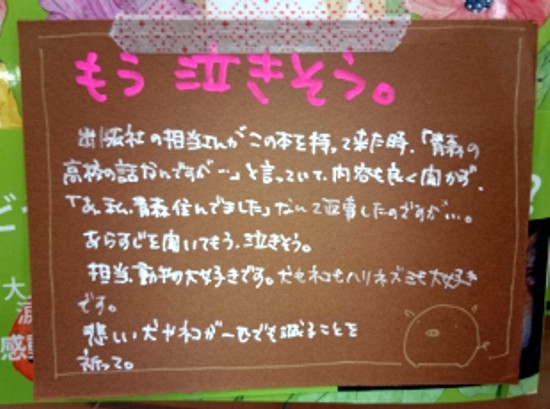 もう泣きそう。
出版社の担当さんがこの本を持って来た時、「青森の
高校の話なんですが…」と言っていて、内容も良く聞かず、
「あ、私、青森住んでました」なんて返事したのですが…。
あらすじを聞いてもう、泣きそう。
担当、動物大好きです。犬もネコもハリネズミも大好き
です。
悲しい犬やネコが一匹でも減ることを
祈って。
ど
?
大
感動